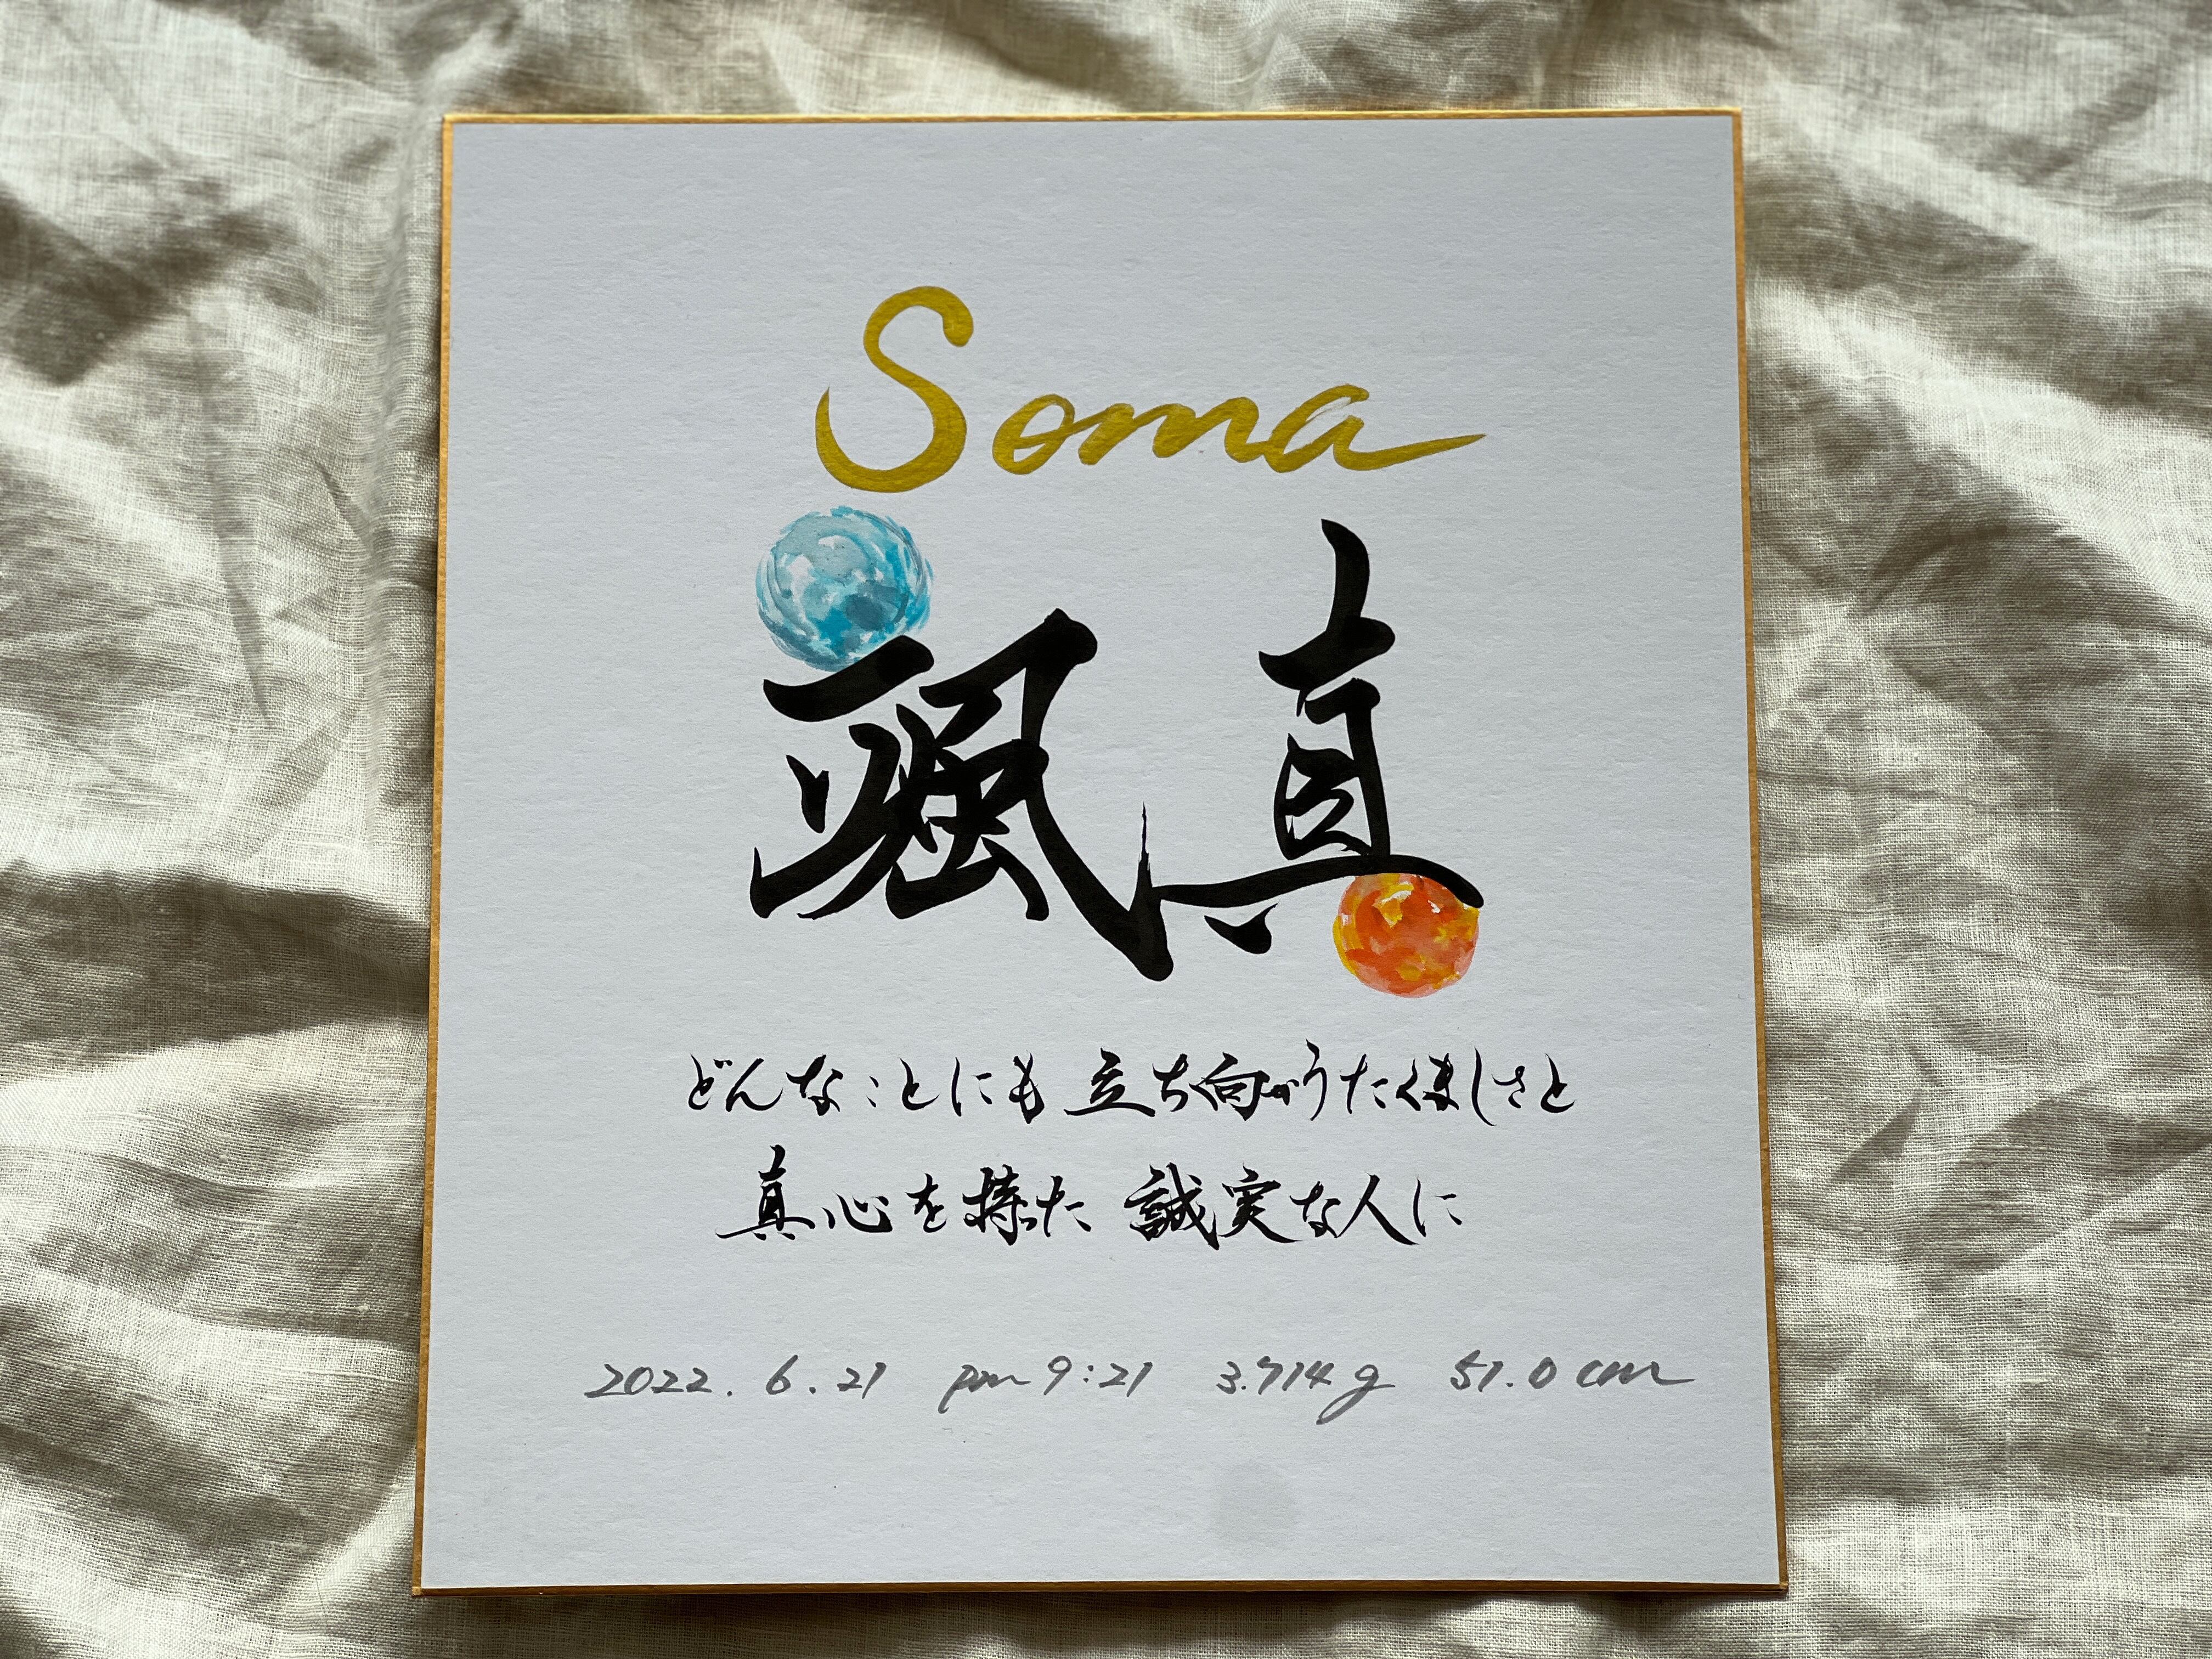 Soma
颯真
どんなことにも立ち向かうたくましさと
真心を持った誠実な人に
2022.6.21 pm 9:21 3.714g 51.0cm